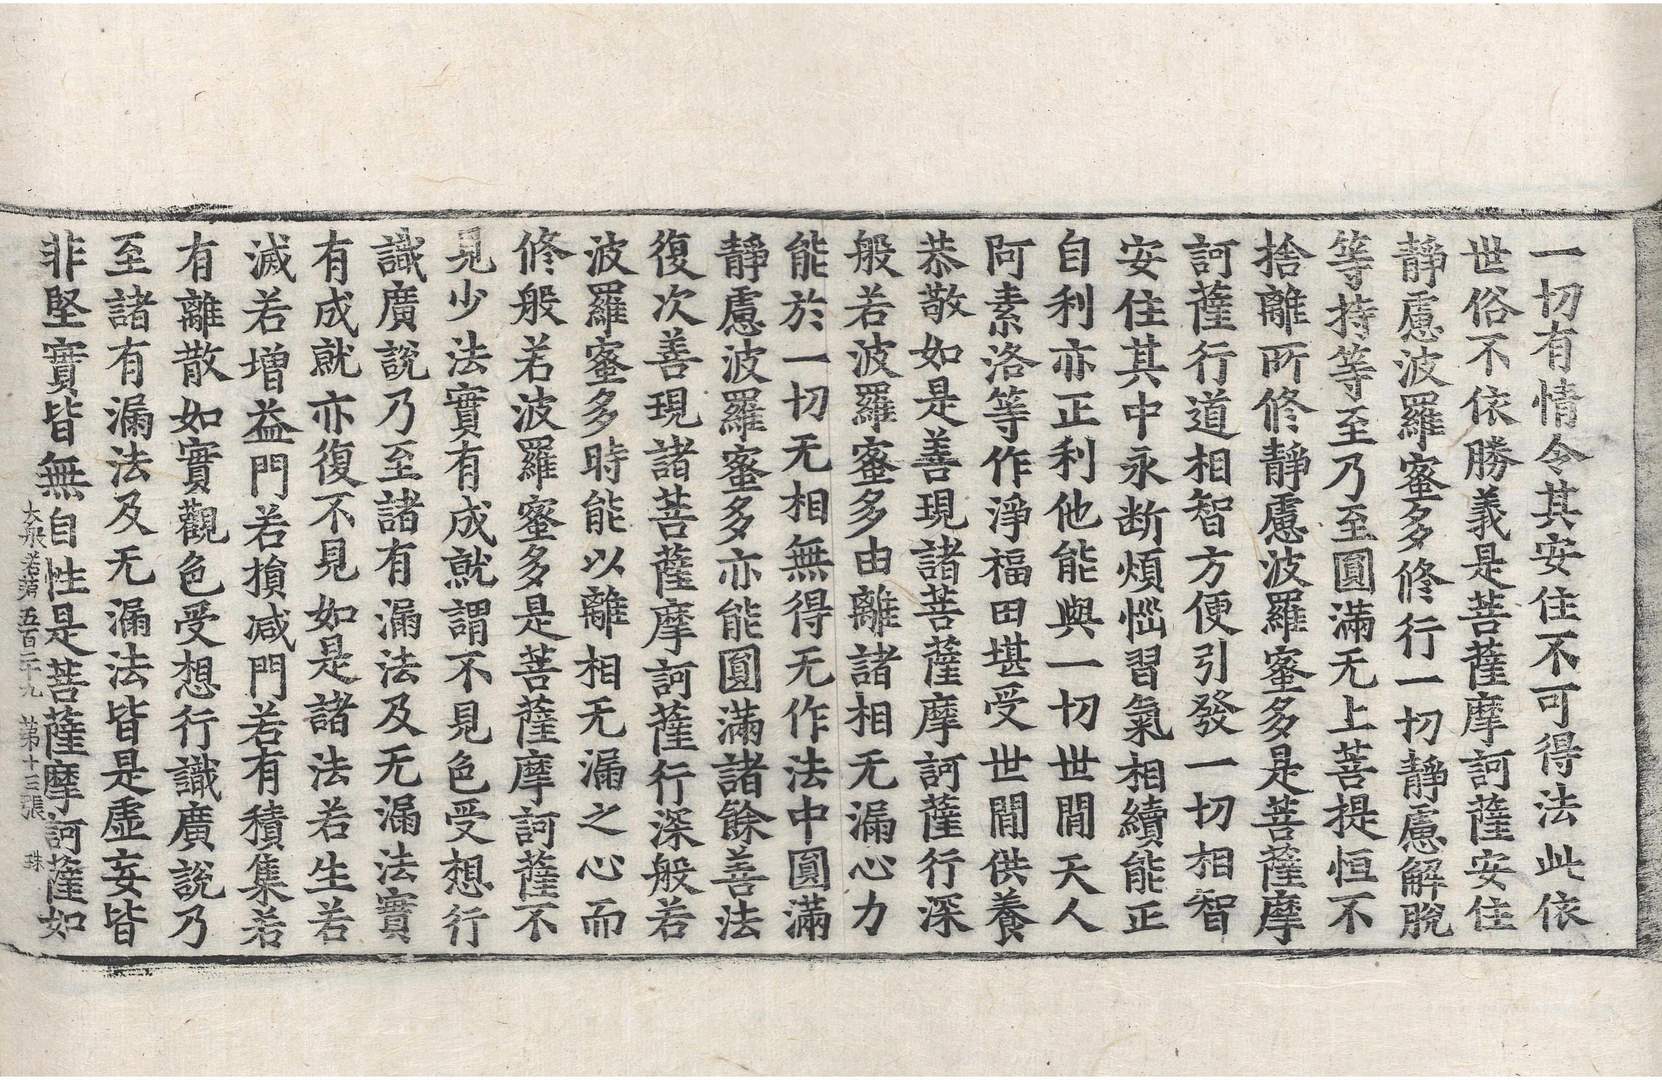 一切有情令其安住不可得法此依
世俗不依勝義是菩薩摩訶薩安住
靜慮波羅蜜多修行一切靜慮解脫
等持等至乃至圓滿无上菩提恒不
捨離所修靜慮波羅蜜多是菩薩摩
訶薩行道相智方便引發一切相智
安住其中永断煩惱習氣相續能正
自利亦正利他能與一切世間天人
阿素洛等作淨福田堪受世間供養
恭敬如是善現諸菩薩摩訶薩行深
般若波羅蜜多由離諸相无漏心力
能於一切无相無得无作法中圓滿
靜慮波羅蜜多亦能圓滿諸餘善法
復次善現諸菩薩摩訶薩行深般若
波羅蜜多時能以離相无漏之心而
修般若波羅蜜多是菩薩摩訶薩不
見少法實有成就謂不見色受想行
識廣說乃至諸有漏法及无漏法實
有成就亦復不見如是諸法若生若
滅若增益門若損减門若有積集若
有離散如實觀色受想行識廣說乃
至諸有漏法及无漏法皆是虛妄皆
非堅實皆無自性是菩薩摩訶薩如
大般若第五百二十九 第十三張 珠